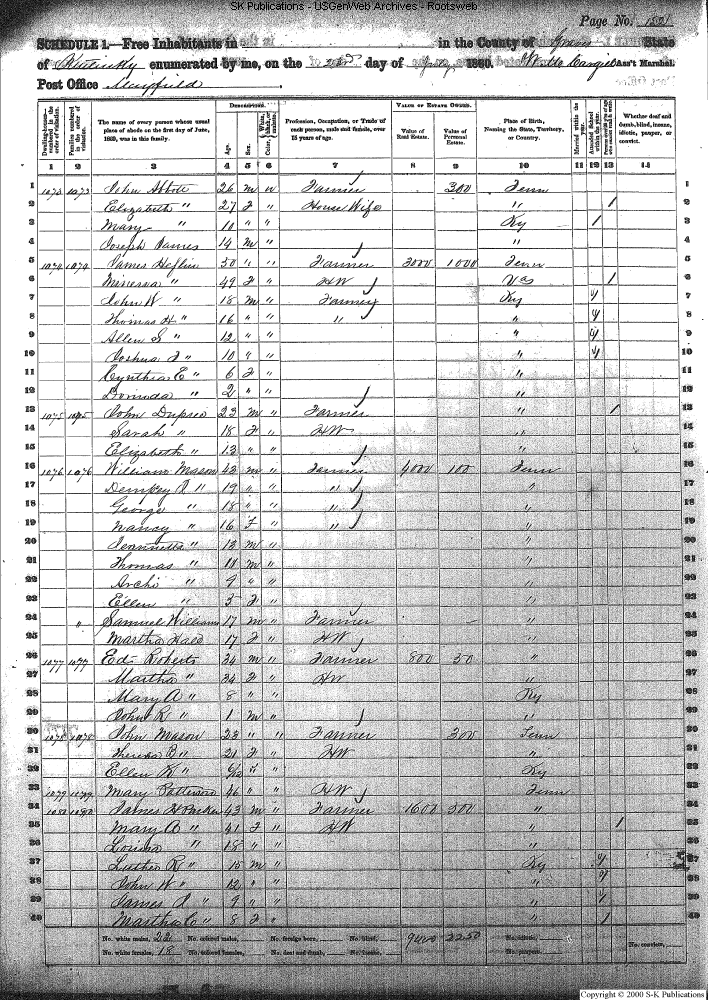 SK Publications - USGenWeb Archives - Rootsweb
Page No. 152
SCHEDULE 1.—Free Inhabitants in in the County of State
of Kentucky enumerated by me, on the day of 1860. Ass't Marshal.
Post Office Mayfield
Dwelling-houses—numbered in the order of visitation.
Families numbered in the order of visitation.
The name of every person whose usual place of abode on the first day of June, 1860, was in this family.
DESCRIPTION.
Age.
Sex.
Color,
Profession, Occupation, or Trade of each person, male and female, over 15 years of age.
VALUE OF ESTATE OWNED.
Value of Real Estate.
Value of Personal Estate.
Place of Birth, Naming the State, Territory, or Country.
Married within the year.
Attended School within the year.
Whether deaf and dumb, blind, insane, idiotic, pauper, or convict.
1 2 3 4 5 6 7 8 9 10 11 12 13 14
1 1073 1073 John Abbott 26 m w Farmer 300 Tenn 1
2 Elizabeth " 27 f " House Wife " / 2
3 Mary " 10 " " Ky / 3
4 Joseph James 14 m " " 4
5 1074 1074 James Heflin 50 " " Farmer 3000 1000 Tenn 5
6 Minerva " 49 f " HW Va / 6
7 John W " 18 m " Farmer Ky 7
8 Thomas H " 16 " " " " 8
9 Allen S " 12 " " " 9
10 Joshua " 10 " " " 10
11 Cynthia E " 6 f " " 11
12 " 2 " " " 12
13 1075 John Dupree 23 m " Farmer " / 13
14 Sarah " 18 f " HW " 14
15 Elizabeth " 13 " " " 15
16 1076 1076 William Mason 43 m " Farmer 4000 100 Tenn 16
17 Dempsey " 19 " " " " 17
18 George " 18 " " " " 18
19 Nancy " 16 F " " " 19
20 " m " " 20
21 Thomas " m " " 21
22 Archi " 9 " " " 22
23 Ellen " 5 f " " 23
24 " Samuel Williams 17 m " Farmer " 24
25 Martha 17 f " HW " 25
26 1077 1077 Ed Roberts 34 m " Farmer 800 50 " 26
27 Martha " 34 f " HW " 27
28 Mary A " 8 " " Ky 28
29 John R " 1 m " " 29
30 1078 1078 John Mason " " Farmer 300 Tenn 30
31 B " 21 f " HW " 31
32 Ellen K " " Ky 32
33 1079 1079 Mary Patterson 46 " " HW Tenn 33
34 James H 43 m " Farmer 1600 500 " 34
35 Mary A " 41 f " HW " / 35
36 " 18 " " " 36
37 Luther R " 15 m " Ky 37
38 John W " 12 " " " 38
39 James " 9 " " " 39
40 Martha C " 8 f " " / 40
No. white males, 22 No. colored males, No. foreign born, No. blind, 9400 2250 No. idiotic, No. convicts,
No. white females, 18 No. colored females, No. deaf and dumb, No. insane, No. paupers,
Copyright © 2000 S-K Publications